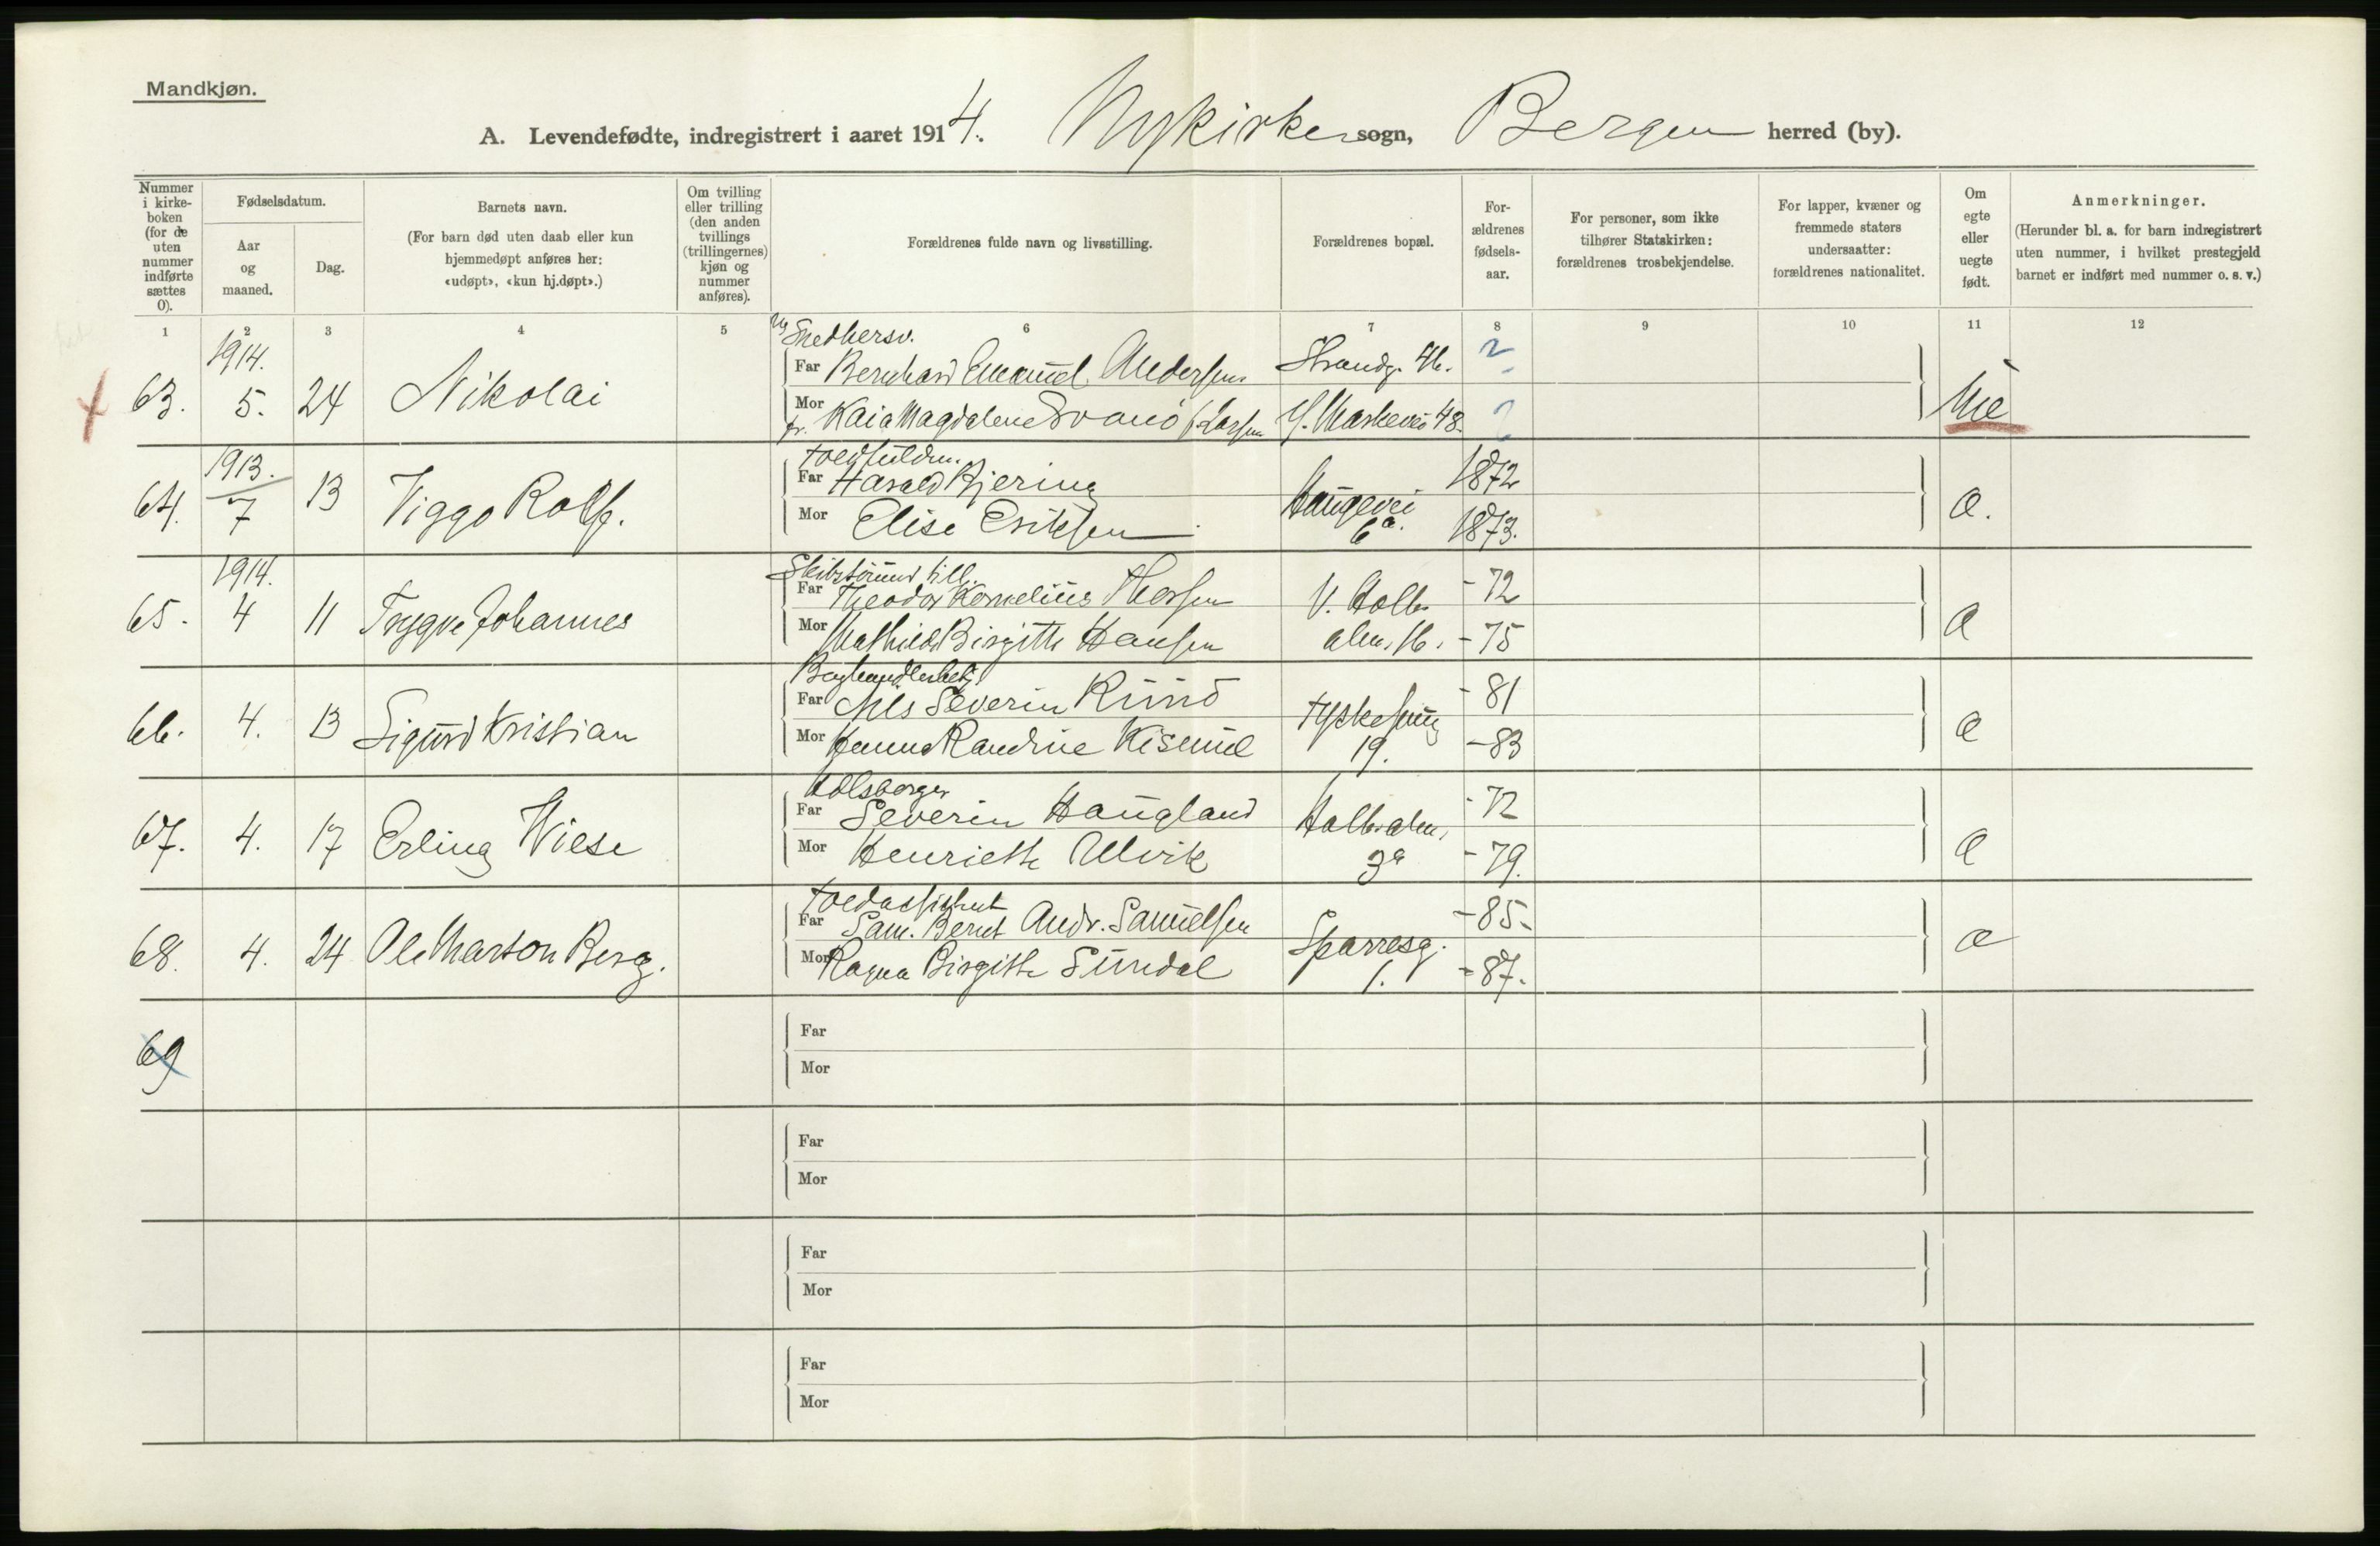 Mandkjøn.
A. Levendefødte, indregistrert i aaret 1914. Nykirke sogn, Bergen herred (by).
Nummer i kirke-boken (for de uten nummer indførte sættes 0).
Fødselsdatum.
Aar og maaned.
Dag.
Barnets navn.
(For barn død uten daab eller kun hjemmedøpt anføres her: «udøpt», «kun hj.døpt».)
Om tvilling eller trilling (den anden tvillings (trillingernes) kjøn og nummer anføres).
Forældrenes fulde navn og livsstilling.
Forældrenes bopæl.
For-ældrenes fødsels-aar.
For personer, som ikke tilhører Statskirken: forældrenes trosbekjendelse.
For lapper, kvæner og fremmede staters undersaatter: forældrenes nationalitet.
Om egte eller uegte født.
Anmerkninger.
(Herunder bl. a. for barn indregistrert uten nummer, i hvilket prestegjeld barnet er indført med nummer o. s. v.)
1 2 3 4 5 6 7 8 9 10 11 12
1914.
63. 5. 24 Nikolai
Snedkersv.
Far Bernhard Emanuel Andersen Strandg. ?
Mor fr. Kaia Magdalene Svanö f. Larsen 48. ? Ue
1913.
64. 7 13 Viggo Rolf.
Far Harald Bjering Haugevei 1872
Mor Elise Eriksen 6a. 1873. a.
1914.
65. 4 11 Trygve Johannes
Far Theodor Kornelius V. Holb. - 72
Mor Mathilde Birgitte Hansen alm. 16. - 75 a
66. 4. 13 Sigurd Kristian
Far Nils Severin - 81
Mor Randine 19. - 83 a
67. 4. 17 Erling Wiese
Far Severin Haugland Holb. alm. - 72
Mor Henriette Ulvik 3a - 79. a
68. 4. 24 Ole Marton Berg.
Toldassistent
Far Sam. Bernt Andr. Samuelsen Sparresg. - 85.
Mor Ragna Birgitte Sundal 1. - 87. a
69
Far
Mor
Far
Mor
Far
Mor
Far
Mor